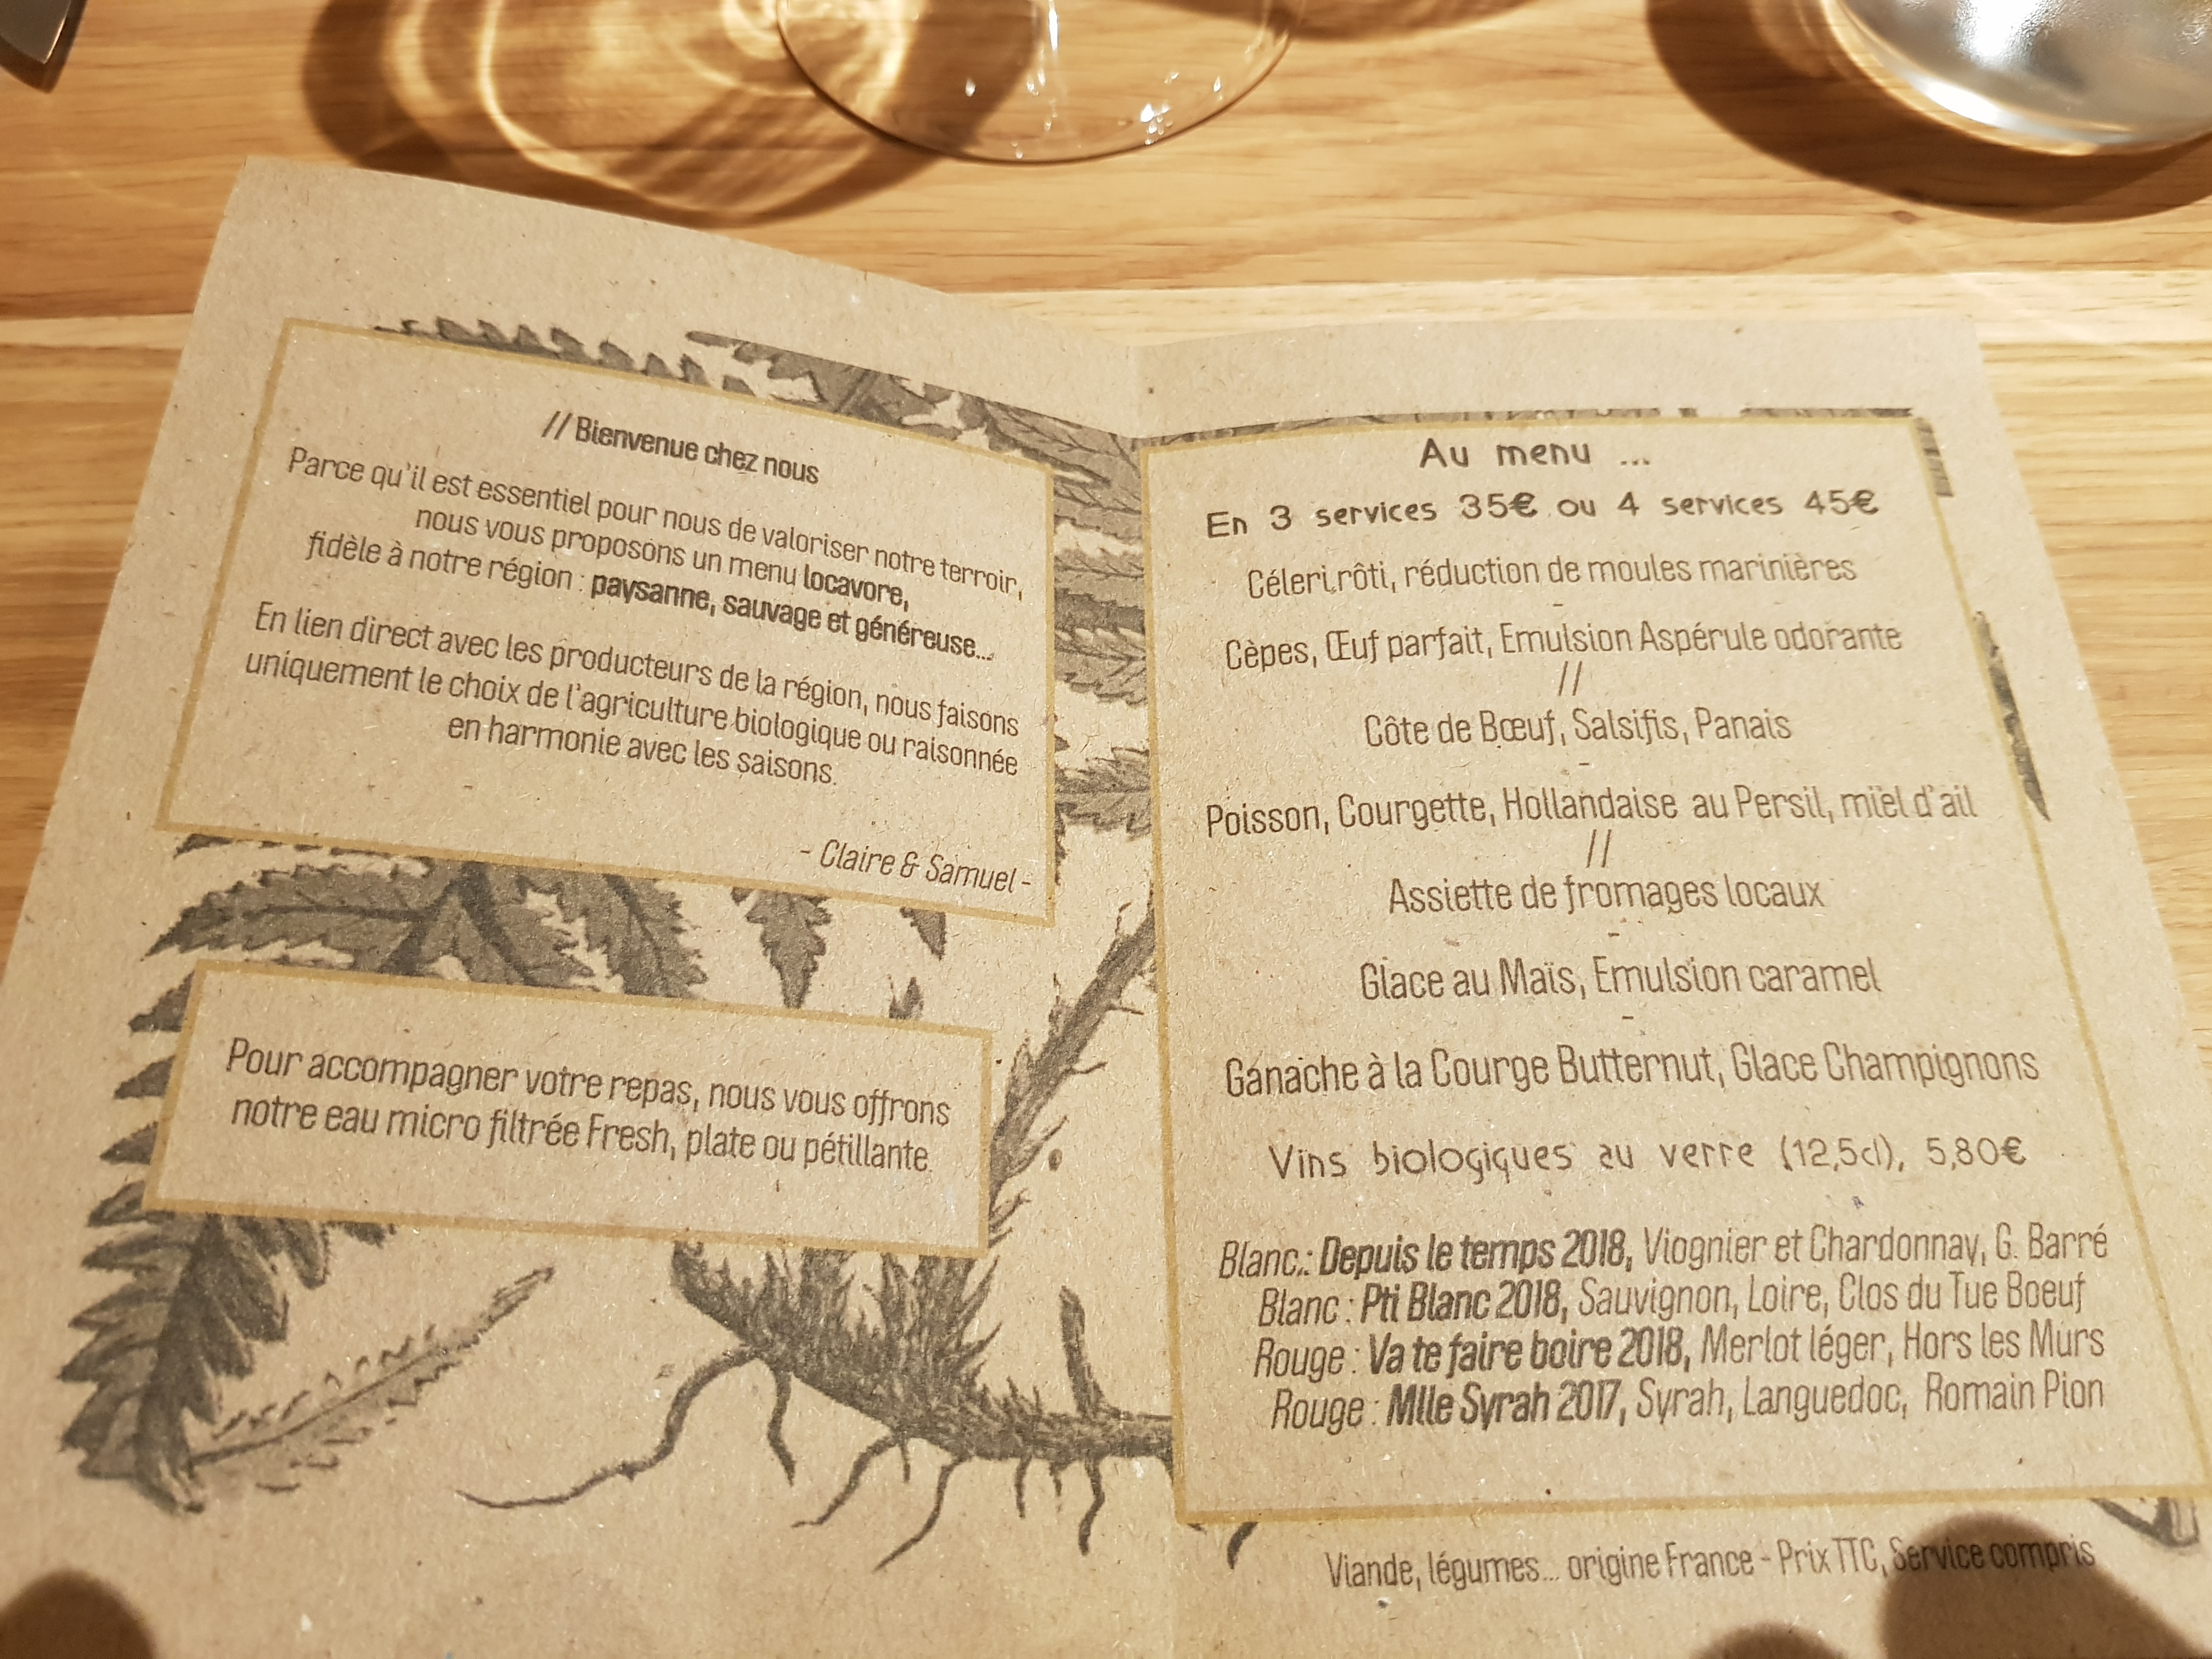 // Bienvenue chez nous
Parce qu'il est essentiel pour nous de valoriser notre terroir,
nous vous proposons un menu locavore,
fidèle à notre région : paysanne, sauvage et généreuse...
En lien direct avec les producteurs de la région, nous faisons
uniquement le choix de l'agriculture biologique ou raisonnée
en harmonie avec les saisons.
- Claire & Samuel -
Pour accompagner votre repas, nous vous offrons
notre eau micro filtrée Fresh, plate ou pétillante.
Au menu ...
En 3 services 35€ ou 4 services 45€
Céleri rôti, réduction de moules marinières
-
Cèpes, Œuf parfait, Emulsion Aspérule odorante
//
Côte de Bœuf, Salsifis, Panais
-
Poisson, Courgette, Hollandaise au Persil, miel d'ail
//
Assiette de fromages locaux
-
Glace au Maïs, Emulsion caramel
-
Ganache à la Courge Butternut, Glace Champignons
Vins biologiques au verre (12,5cl), 5,80€
Blanc : Depuis le temps 2018, Viognier et Chardonnay, G. Barré
Blanc : Pti Blanc 2018, Sauvignon, Loire, Clos du Tue Boeuf
Rouge : Va te faire boire 2018, Merlot léger, Hors les Murs
Rouge : Mlle Syrah 2017, Syrah, Languedoc, Romain Pion
Viande, légumes... origine France - Prix TTC, Service compris